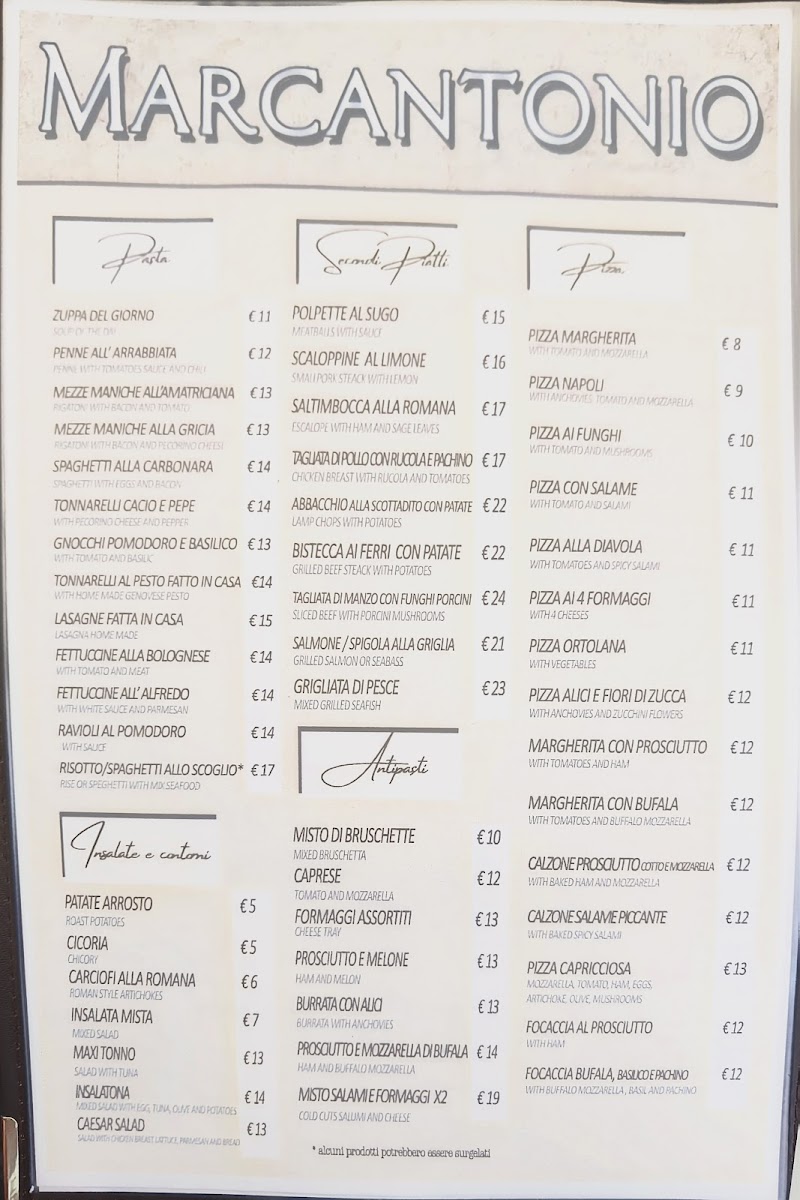 MARCANTONIO
Pasta
ZUPPA DEL GIORNO € 11
SOUP OF THE DAY
PENNE ALL' ARRABBIATA € 12
PENNE WITH TOMATOES SAUCE AND CHILI
MEZZE MANICHE ALL'AMATRICIANA € 13
RIGATONI WITH BACON AND TOMATO
MEZZE MANICHE ALLA GRICIA € 13
RIGATONI WITH BACON AND PECORINO CHEESE
SPAGHETTI ALLA CARBONARA € 14
SPAGHETTI WITH EGGS AND BACON
TONNARELLI CACIO E PEPE € 14
WITH PECORINO CHEESE AND PEPPER
GNOCCHI POMODORO E BASILICO € 13
WITH TOMATO AND BASILIC
TONNARELLI AL PESTO FATTO IN CASA €14
WITH HOME MADE GENOVESE PESTO
LASAGNE FATTA IN CASA € 15
LASAGNA HOME MADE
FETTUCCINE ALLA BOLOGNESE € 14
WITH TOMATO AND MEAT
FETTUCCINE ALL' ALFREDO €14
WITH WHITE SAUCE AND PARMESAN
RAVIOLI AL POMODORO €14
WITH SAUCE
RISOTTO/SPAGHETTI ALLO SCOGLIO* € 17
RISE OR SPEGHETTI WITH MIX SEAFOOD
Insalate e contorni
PATATE ARROSTO €5
ROAST POTATOES
CICORIA €5
CHICORY
CARCIOFI ALLA ROMANA €6
ROMAN STYLE ARTICHOKES
INSALATA MISTA €7
MIXED SALAD
MAXI TONNO €13
SALAD WITH TUNA
INSALATONA €14
MIXED SALAD WITH EGG, TUNA, OLIVE AND POTATOES
CAESAR SALAD €13
SALAD WITH CHICKEN BREAST LATTUCE, PARMESAN AND BREAD
Secondi Piatti
POLPETTE AL SUGO € 15
MEATBALLS WITH SAUCE
SCALOPPINE AL LIMONE € 16
SMALL PORK STEACK WITH LEMON
SALTIMBOCCA ALLA ROMANA € 17
ESCALOPE WITH HAM AND SAGE LEAVES
TAGLIATA DI POLLO CON RUCOLA E PACHINO € 17
CHICKEN BREAST WITH RUCOLA AND TOMATOES
ABBACCHIO ALLA SCOTTADITO CON PATATE €22
LAMP CHOPS WITH POTATOES
BISTECCA AI FERRI CON PATATE €22
GRILLED BEEF STEACK WITH POTATOES
TAGLIATA DI MANZO CON FUNGHI PORCINI €24
SLICED BEEF WITH PORCINI MUSHROOMS
SALMONE / SPIGOLA ALLA GRIGLIA €21
GRILLED SALMON OR SEABASS
GRIGLIATA DI PESCE €23
MIXED GRILLED SEAFISH
Antipasti
MISTO DI BRUSCHETTE €10
MIXED BRUSCHETTA
CAPRESE €12
TOMATO AND MOZZARELLA
FORMAGGI ASSORTITI €13
CHEESE TRAY
PROSCIUTTO E MELONE €13
HAM AND MELON
BURRATA CON ALICI € 13
BURRATA WITH ANCHOVIES
PROSCIUTTO E MOZZARELLA DI BUFALA € 14
HAM AND BUFFALO MOZZARELLA
MISTO SALAMI E FORMAGGI X2 €19
COLD CUTS SALUMI AND CHEESE
* alcuni prodotti potrebbero essere surgelati
Pizza
PIZZA MARGHERITA € 8
WITH TOMATO AND MOZZARELLA
PIZZA NAPOLI € 9
WITH ANCHOVIES, TOMATO AND MOZZARELLA
PIZZA AI FUNGHI € 10
WITH TOMATO AND MUSHROOMS
PIZZA CON SALAME € 11
WITH TOMATO AND SALAMI
PIZZA ALLA DIAVOLA € 11
WITH TOMATOES AND SPICY SALAMI
PIZZA AI 4 FORMAGGI €11
WITH 4 CHEESES
PIZZA ORTOLANA €11
WITH VEGETABLES
PIZZA ALICI E FIORI DI ZUCCA €12
WITH ANCHOVIES AND ZUCCHINI FLOWERS
MARGHERITA CON PROSCIUTTO €12
WITH TOMATOES AND HAM
MARGHERITA CON BUFALA €12
WITH TOMATOES AND BUFFALO MOZZARELLA
CALZONE PROSCIUTTO COTTO E MOZZARELLA €12
WITH BAKED HAM AND MOZZARELLA
CALZONE SALAME PICCANTE €12
WITH BAKED SPICY SALAMI
PIZZA CAPRICCIOSA €13
MOZZARELLA, TOMATO, HAM, EGGS,
ARTICHOKE, OLIVE, MUSHROOMS
FOCACCIA AL PROSCIUTTO €12
WITH HAM
FOCACCIA BUFALA, BASILICO E PACHINO €12
WITH BUFFALO MOZZARELLA, BASIL AND PACHINO